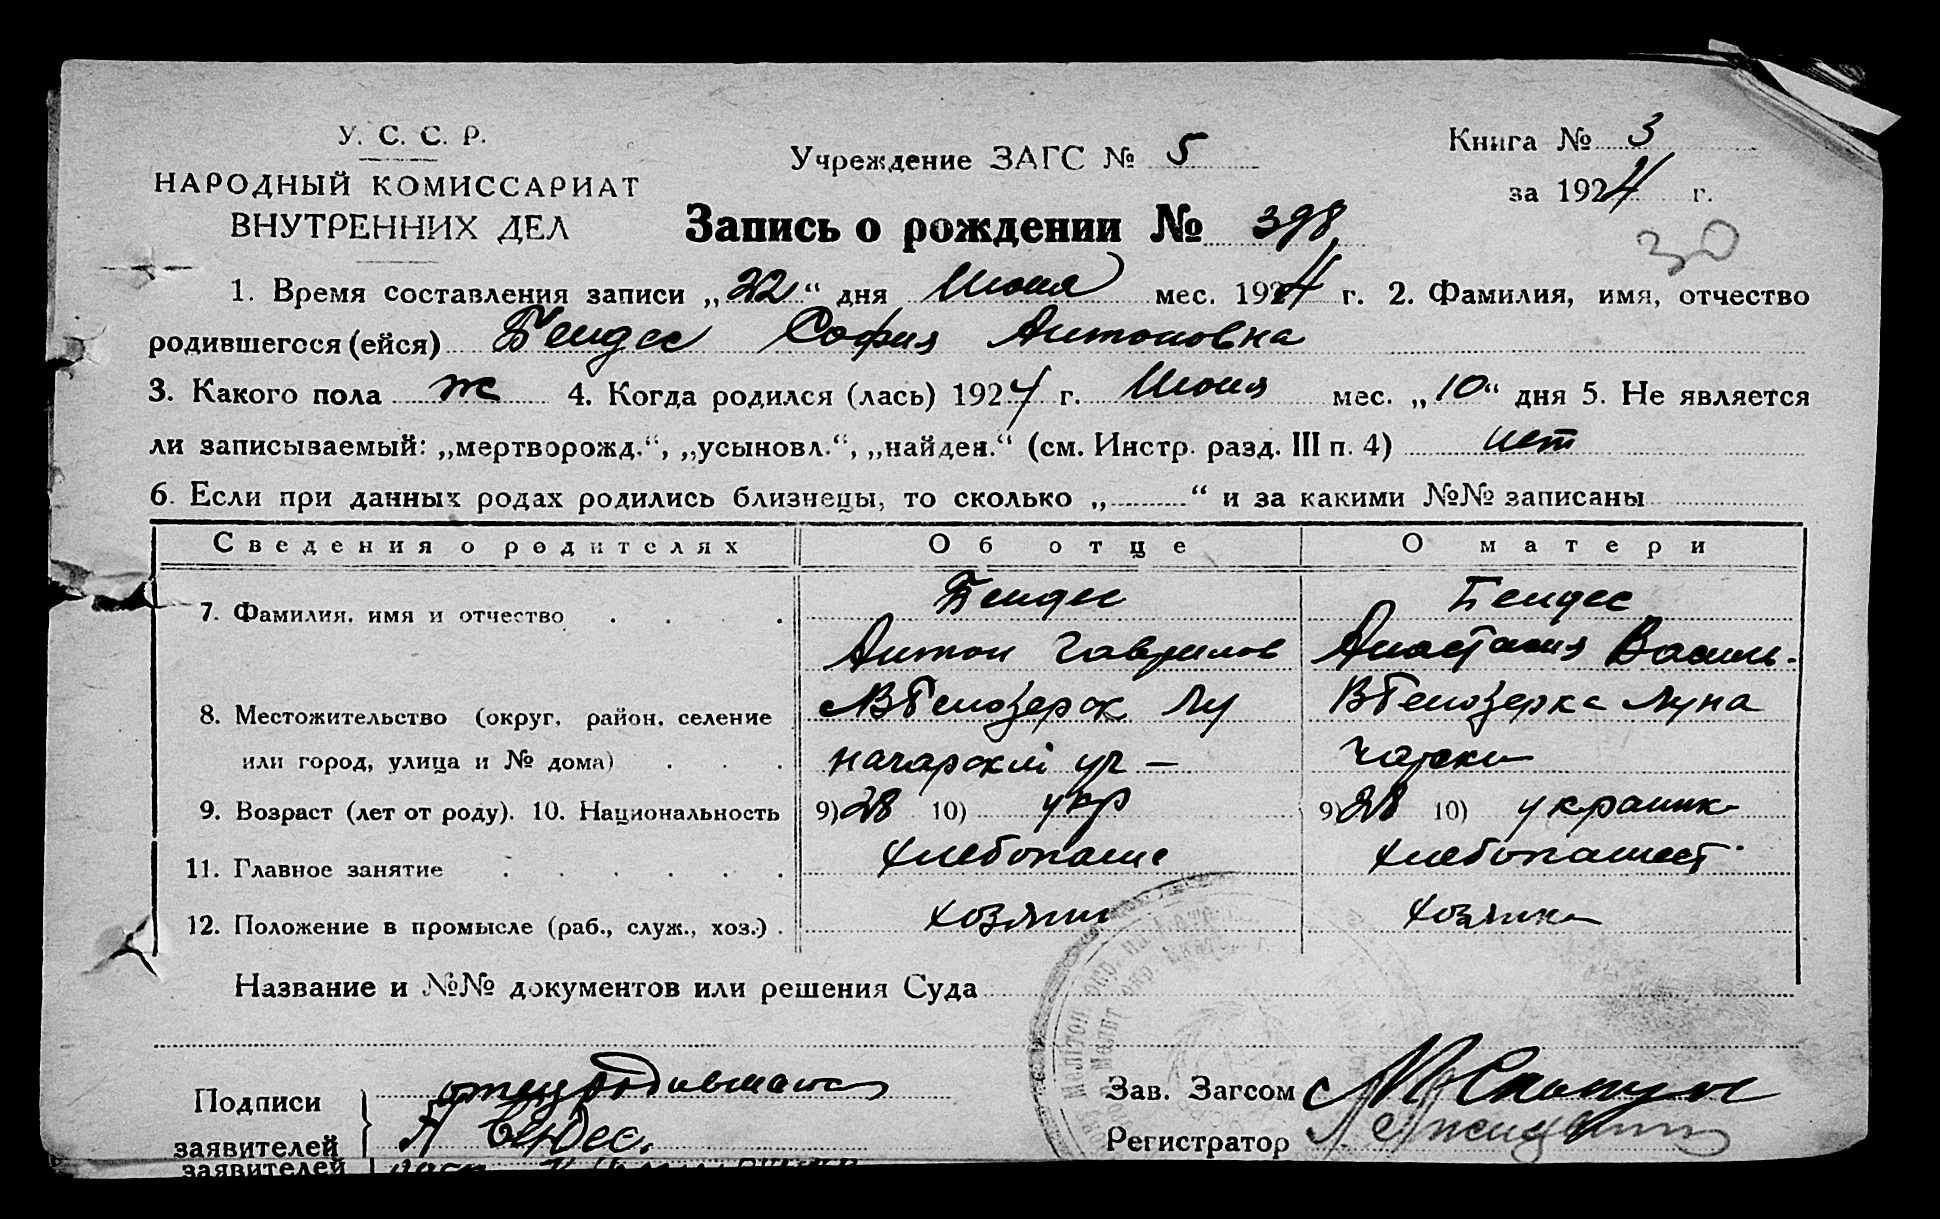 У. С. С. Р.
НАРОДНЫЙ КОМИССАРИАТ
ВНУТРЕННИХ ДЕЛ
Учреждение ЗАГС № 5
Книга № 3
за 1924 г.
30
Запись о рождении № 398
1. Время составления записи „22“ дня Июня мес. 1924 г. 2. Фамилия, имя, отчество
родившегося (ейся) Бендес София Антоновна
3. Какого пола ж 4. Когда родился (лась) 1924 г. Июня мес. „10“ дня 5. Не является
ли записываемый: „мертворожд.“, „усыновл.“, „найден.“ (см. Инстр. разд. III п. 4) нет
6. Если при данных родах родились близнецы, то сколько „ “ и за какими №№ записаны
Сведения о родителях Об отце О матери
7. Фамилия, имя и отчество Бендес Бендес
Антон Гаврилов Анастасия Василь-
8. Местожительство (округ, район, селение ВБелозерск Лу ВБелозерке Луна
или город, улица и № дома) начарский чарски
9. Возраст (лет от роду). 10. Национальность 9) 28 10) укр 9) 28 10) украинк
11. Главное занятие хлебопаше хлебопашест
12. Положение в промысле (раб., служ., хоз.) хозяин хозяйка
Название и №№ документов или решения Суда
Подписи
заявителей
отец родившаяся
А Бендес.
Зав. Загсом
Регистратор
заявителей